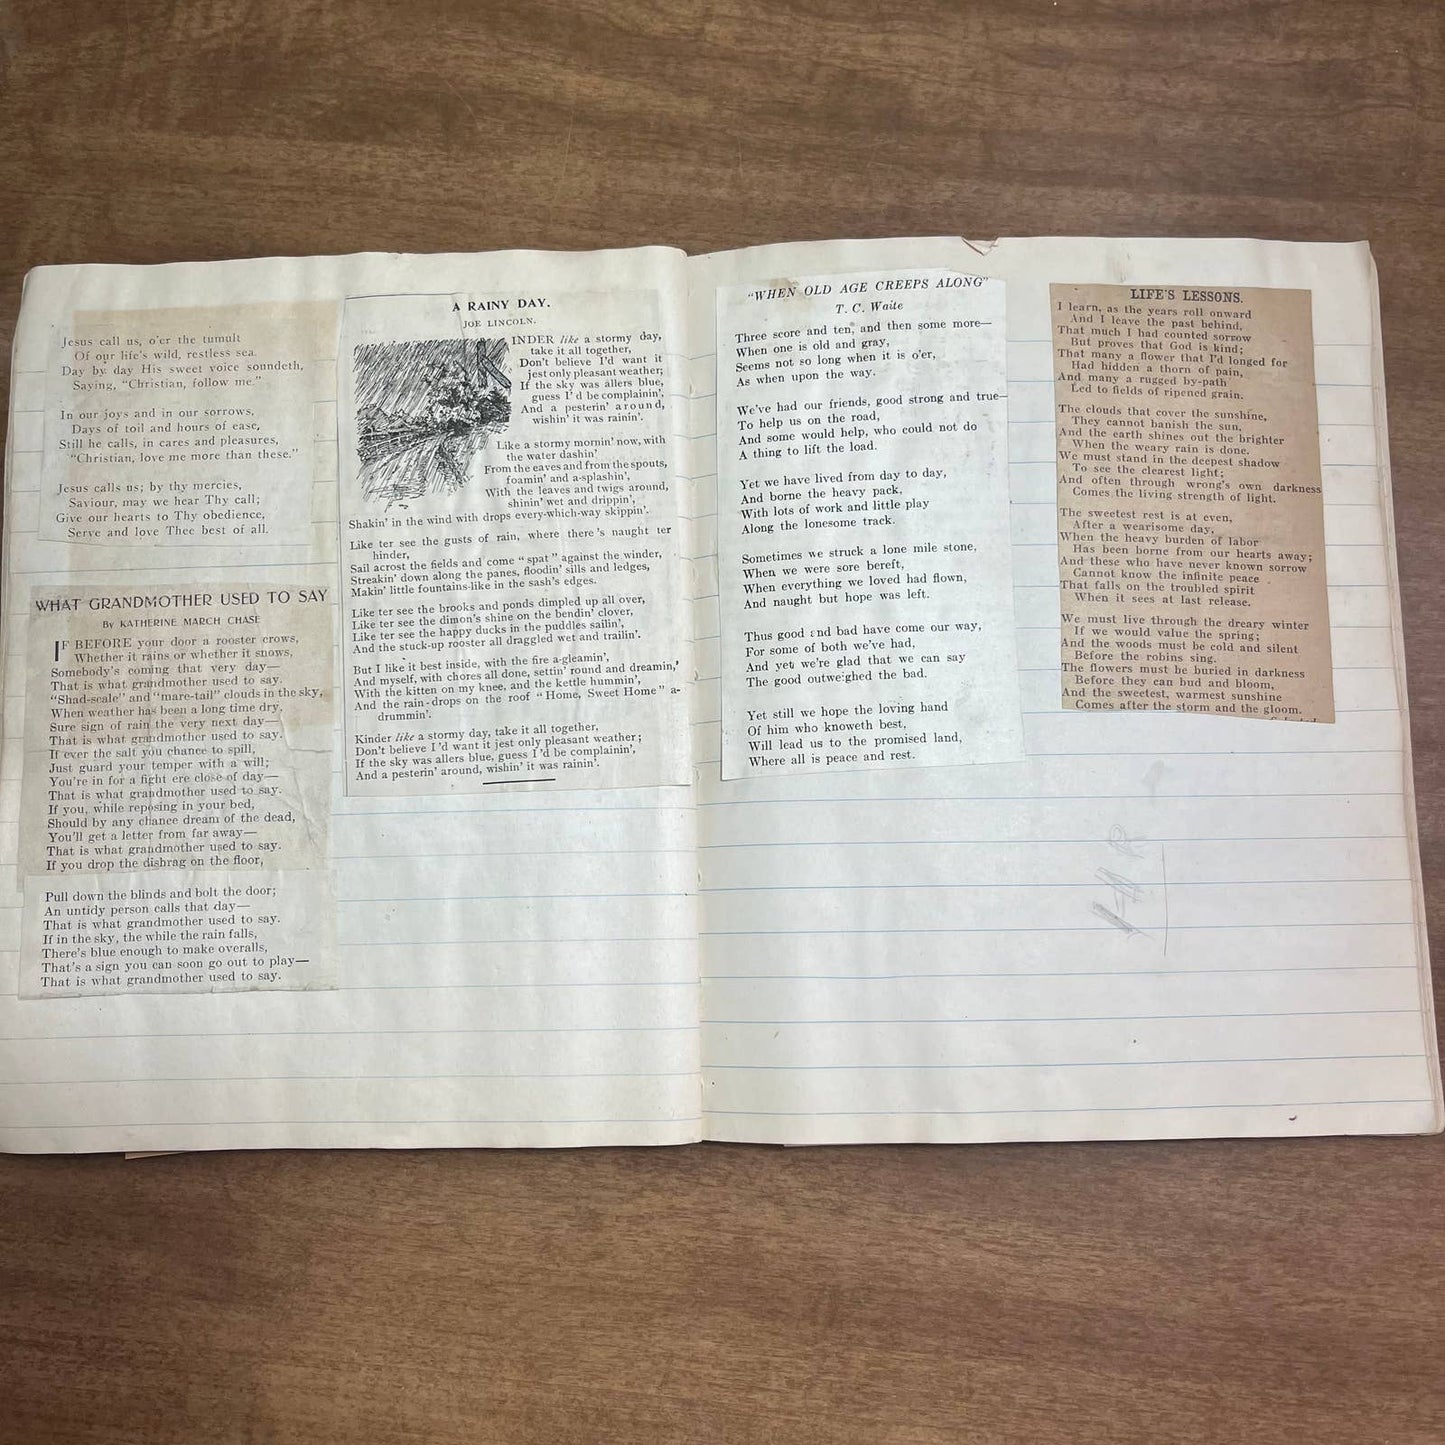 Jesus call us, o'er the tumult
Of our life's wild, restless sea.
Day by day His sweet voice soundeth,
Saying, "Christian, follow me."
In our joys and in our sorrows,
Days of toil and hours of ease,
Still he calls, in cares and pleasures,
"Christian, love me more than these."
Jesus calls us; by thy mercies,
Saviour, may we hear Thy call;
Give our hearts to Thy obedience,
Serve and love Thee best of all.
WHAT GRANDMOTHER USED TO SAY
By KATHERINE MARCH CHASE
IF BEFORE your door a rooster crows,
Whether it rains or whether it snows,
Somebody's coming that very day—
That is what grandmother used to say.
"Shad-scale" and "mare-tail" clouds in the sky,
When weather has been a long time dry,
Sure sign of rain the very next day—
That is what grandmother used to say.
If ever the salt you chance to spill,
Just guard your temper with a will;
You're in for a fight ere close of day—
That is what grandmother used to say.
If you, while reposing in your bed,
Should by any chance dream of the dead,
You'll get a letter from far away—
That is what grandmother used to say.
If you drop the dishrag on the floor,
Pull down the blinds and bolt the door;
An untidy person calls that day—
That is what grandmother used to say.
If in the sky, the while the rain falls,
There's blue enough to make overalls,
That's a sign you can soon go out to play—
That is what grandmother used to say.
A RAINY DAY.
JOE LINCOLN.
KINDER like a stormy day,
take it all together,
Don't believe I'd want it
jest only pleasant weather;
If the sky was allers blue,
guess I'd be complainin',
And a pesterin' around,
wishin' it was rainin'.
Like a stormy mornin' now, with
the water dashin'
From the eaves and from the spouts,
foamin' and a-splashin',
With the leaves and twigs around,
shinin' wet and drippin',
Shakin' in the wind with drops every-which-way skippin'.
Like ter see the gusts of rain, where there's naught ter
hinder,
Sail acrost the fields and come "spat" against the winder,
Streakin' down along the panes, floodin' sills and ledges,
Makin' little fountains-like in the sash's edges.
Like ter see the brooks and ponds dimpled up all over,
Like ter see the dimon's shine on the bendin' clover,
Like ter see the happy ducks in the puddles sailin',
And the stuck-up rooster all draggled wet and trailin'.
But I like it best inside, with the fire a-gleamin',
And myself, with chores all done, settin' round and dreamin,'
With the kitten on my knee, and the kettle hummin',
And the rain-drops on the roof "Home, Sweet Home" a-
drummin'.
Kinder like a stormy day, take it all together,
Don't believe I'd want it jest only pleasant weather;
If the sky was allers blue, guess I'd be complainin',
And a pesterin' around, wishin' it was rainin'.
"WHEN OLD AGE CREEPS ALONG"
T. C. Waite
Three score and ten, and then some more—
When one is old and gray,
Seems not so long when it is o'er,
As when upon the way.
We've had our friends, good strong and true—
To help us on the road,
And some would help, who could not do
A thing to lift the load.
Yet we have lived from day to day,
And borne the heavy pack,
With lots of work and little play
Along the lonesome track.
Sometimes we struck a lone mile stone,
When we were sore bereft,
When everything we loved had flown,
And naught but hope was left.
Thus good and bad have come our way,
For some of both we've had,
And yet we're glad that we can say
The good outweighed the bad.
Yet still we hope the loving hand
Of him who knoweth best,
Will lead us to the promised land,
Where all is peace and rest.
LIFE'S LESSONS.
I learn, as the years roll onward
And I leave the past behind,
That much I had counted sorrow
But proves that God is kind;
That many a flower that I'd longed for
Had hidden a thorn of pain,
And many a rugged by-path
Led to fields of ripened grain.
The clouds that cover the sunshine,
They cannot banish the sun,
And the earth shines out the brighter
When the weary rain is done.
We must stand in the deepest shadow
To see the clearest light;
And often through wrong's own darkness
Comes the living strength of light.
The sweetest rest is at even,
After a wearisome day,
When the heavy burden of labor
Has been borne from our hearts away;
And these who have never known sorrow
Cannot know the infinite peace
That falls on the troubled spirit
When it sees at last release.
We must live through the dreary winter
If we would value the spring;
And the woods must be cold and silent
Before the robins sing.
The flowers must be buried in darkness
Before they can bud and bloom,
And the sweetest, warmest sunshine
Comes after the storm and the gloom.